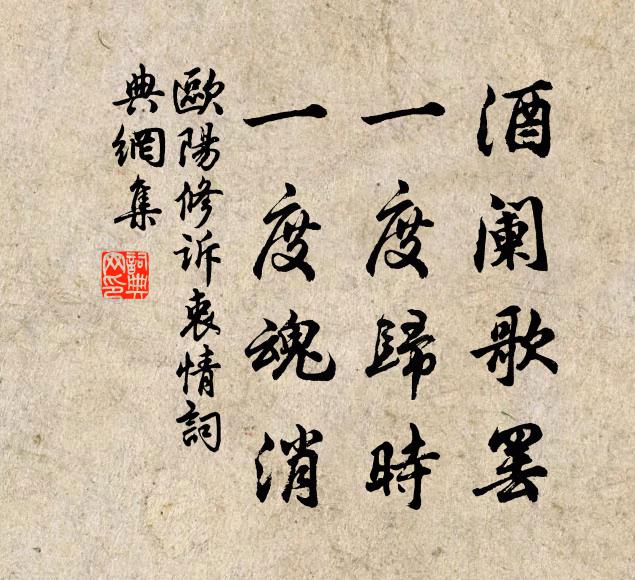 酒阑歌罢
一度歸時
一度魂消
歐陽修诉衷情詞
典網集
詞典
网印